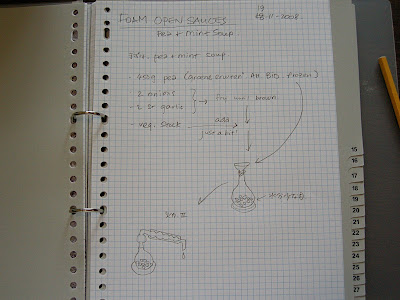 FOAM OPEN SAUCES
19
18-11-2008
Pea + Mint Soup
pea + mint soup
- 450g pea (
frozen)
- 2 onions
- 2 garlic
→ fry until brown
- veg. stock
add
just a bit!
15
16
17
18
19
20
21
22
23
24
25
26
27